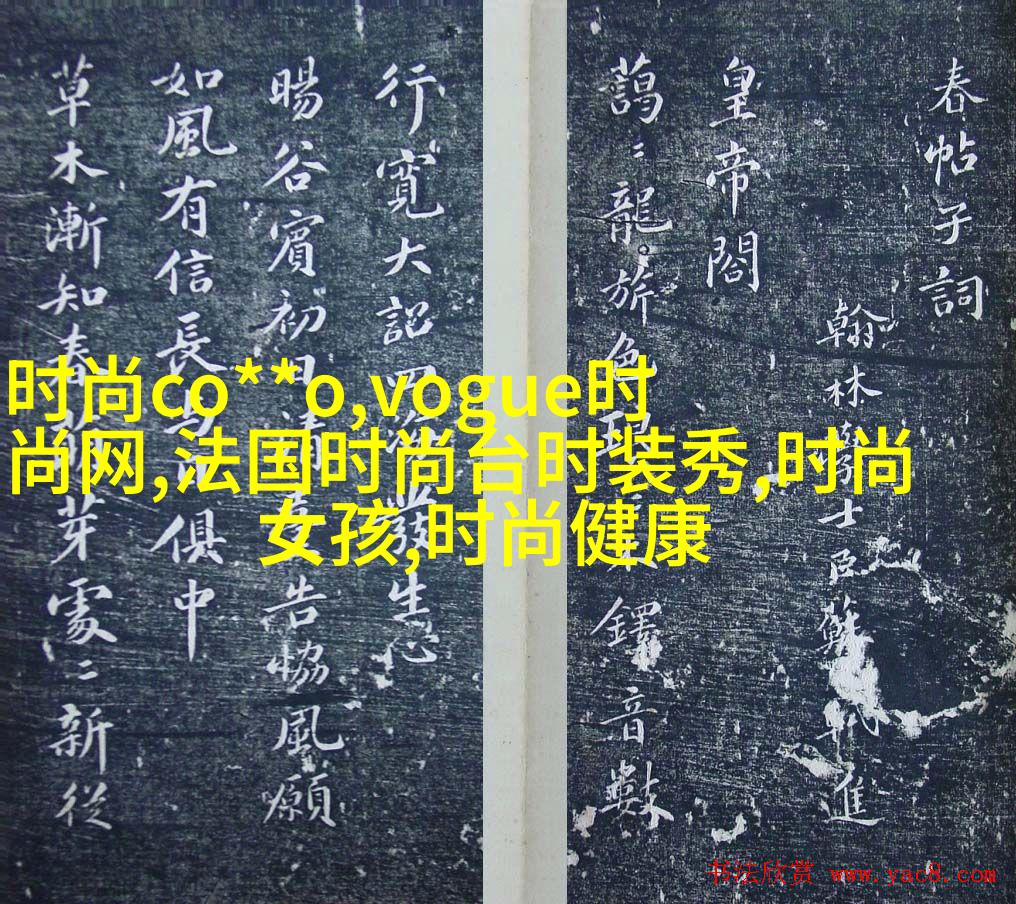 春帖子詞
翰林學士臣蘇軾進
皇帝閤
藹〻龍旂色 鐸音數
行寬大詔四 發生心
暘谷賓初日 告協風願
如風有信長 俱中
草木漸知春 芽處〻新從
时尚co**o,vogue时
尚网,法国时尚台时装秀,时尚
女孩,时尚健康
书法欣赏 www.yac8.com